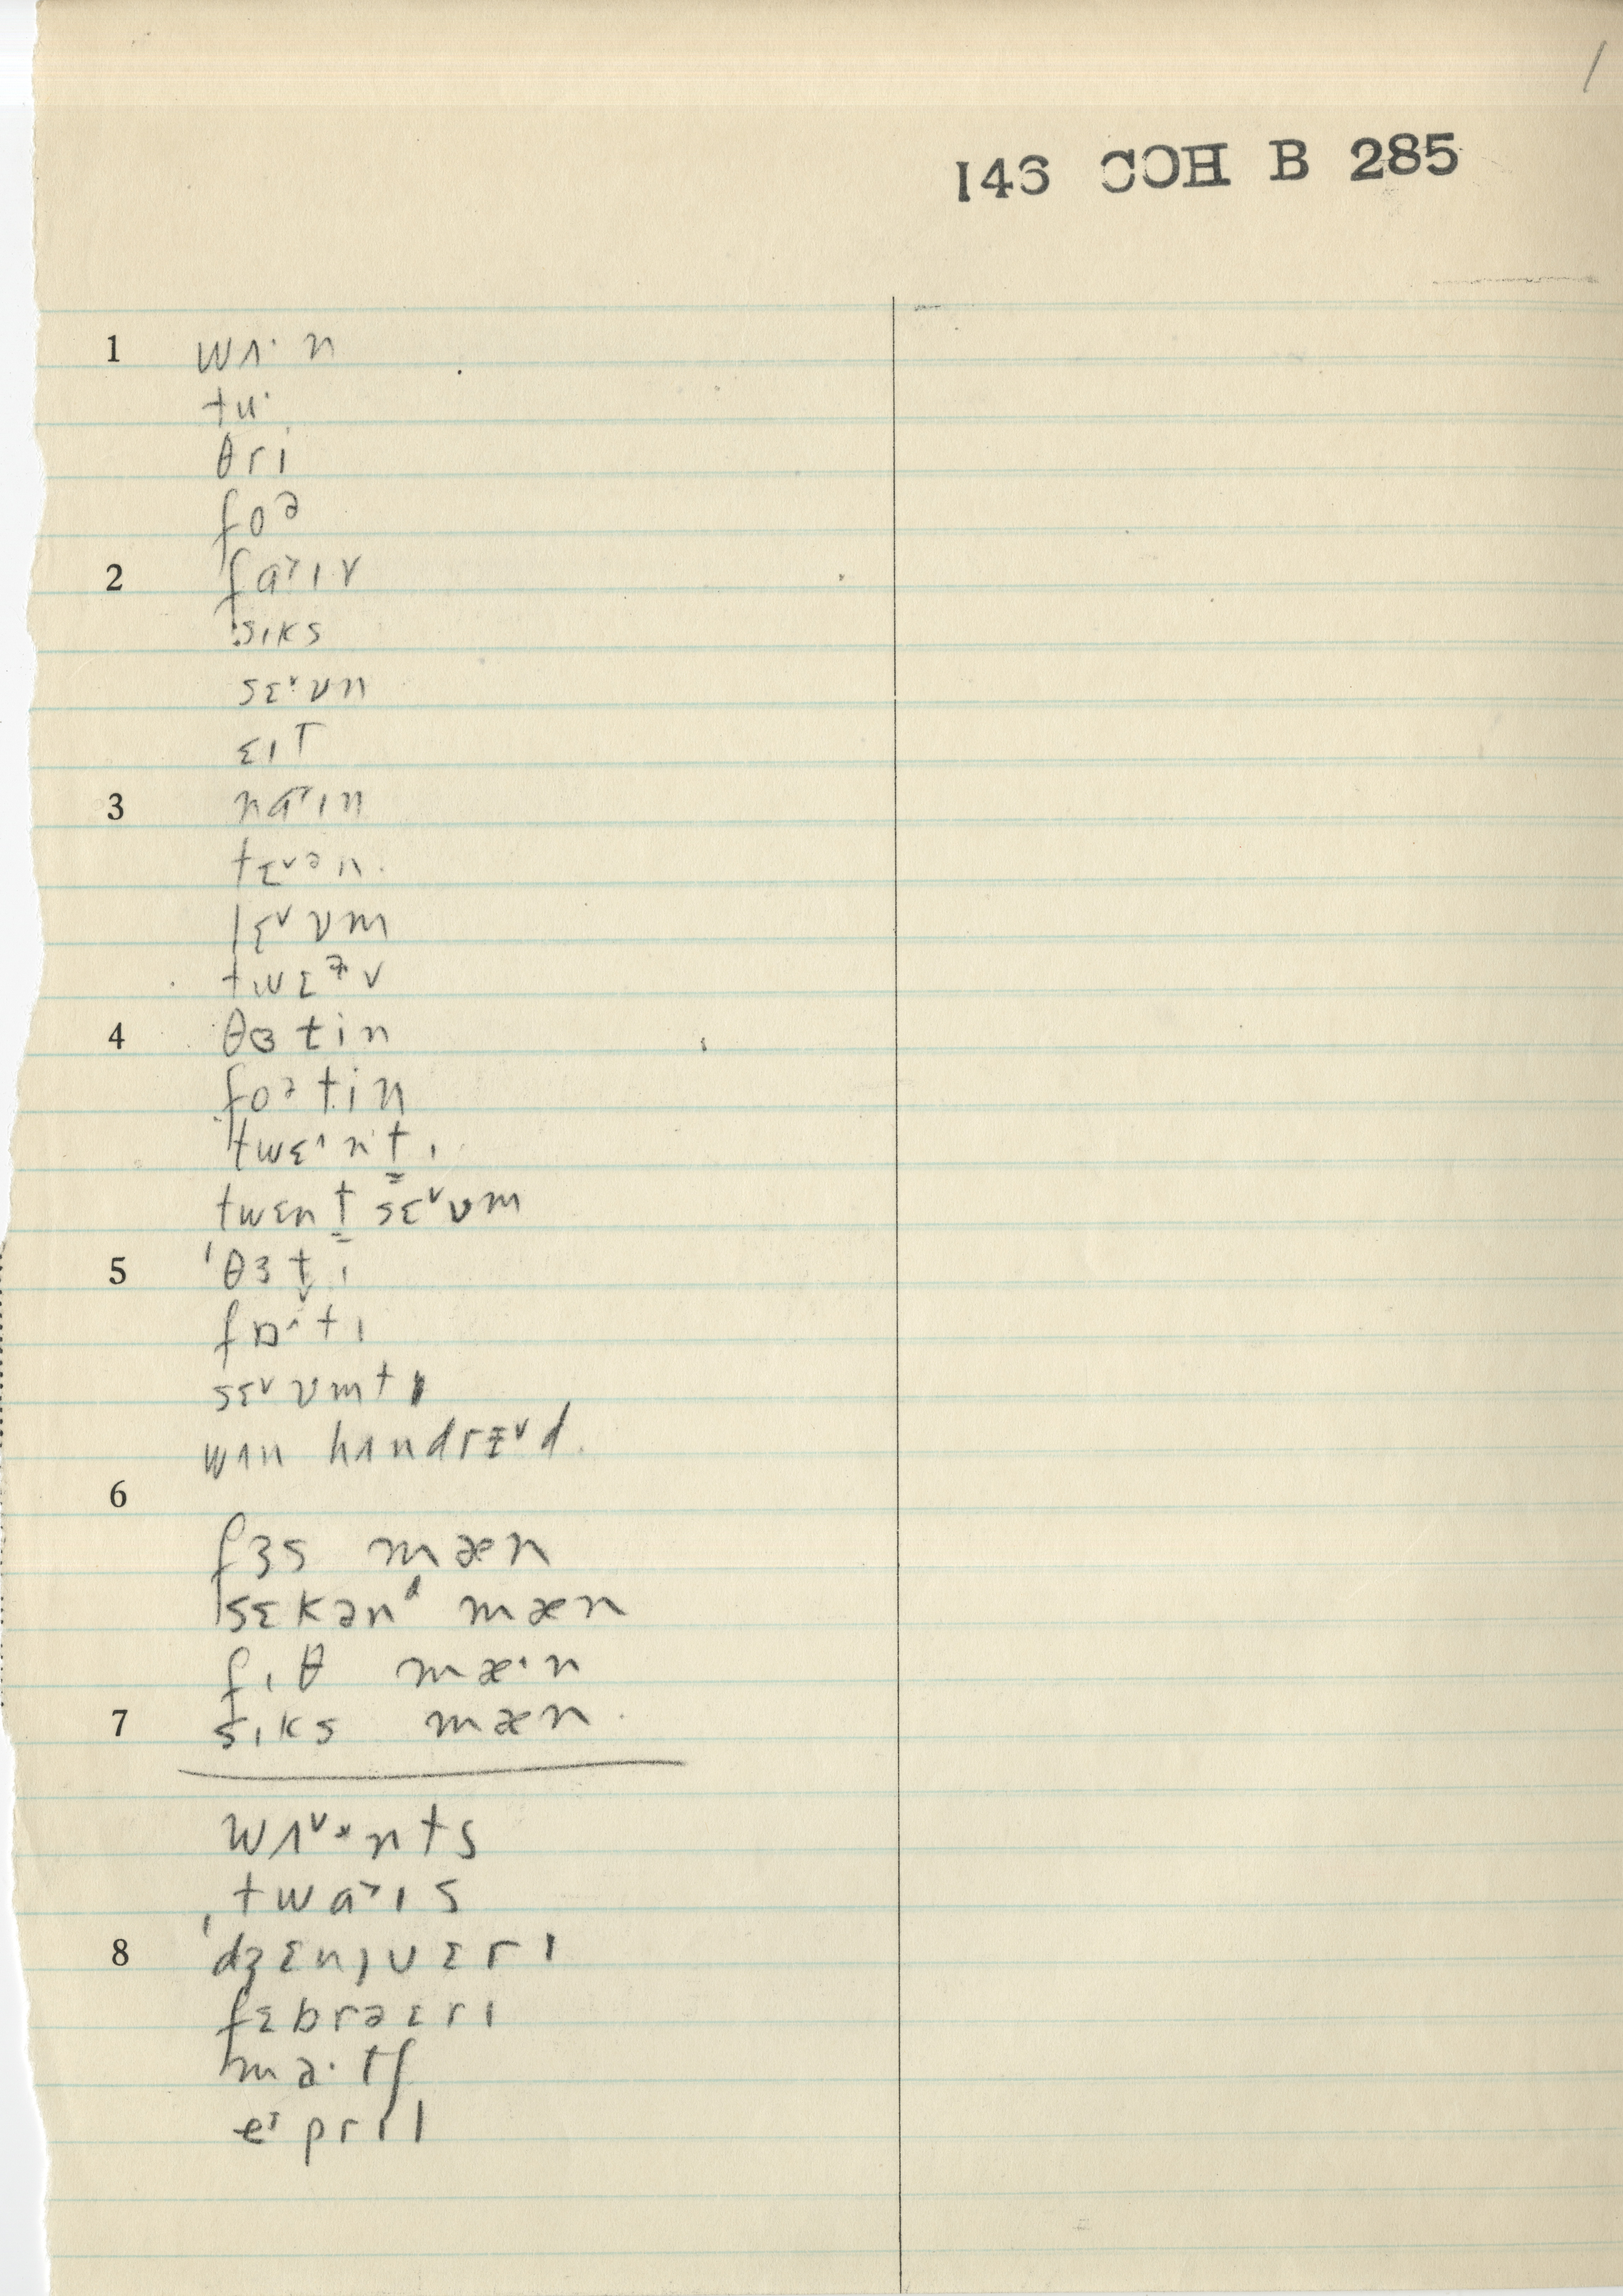 1
146 COH B 285
1 wʌ· n
tu·
θri
foə
2 fa˃ɪv
sɪks
sɛ˅·vn
ɛɪt
3 na˃ɪn
tɛ˅ən.
lɛ˅vm
twɛɫv
4 θɜtin
foətin
twɛ^nt̳ɪ
twɛnt̳ sɛ˅vm
5 'θɜt̬ɪ
fɒ^·tɪ
sɛ˅vmtɪ
wʌn hʌndrɛ˅d.
6
fɜs mæn
sɛkənᵈ mæn
fɪθ mæ·n
7 sɪks mæn.
wʌ˅·nts
twa˃ɪs
8 'dʒɛnjʊˌɛrɪ
fɛbrəɛrɪ
ma·tʃ
eᶦprɪl